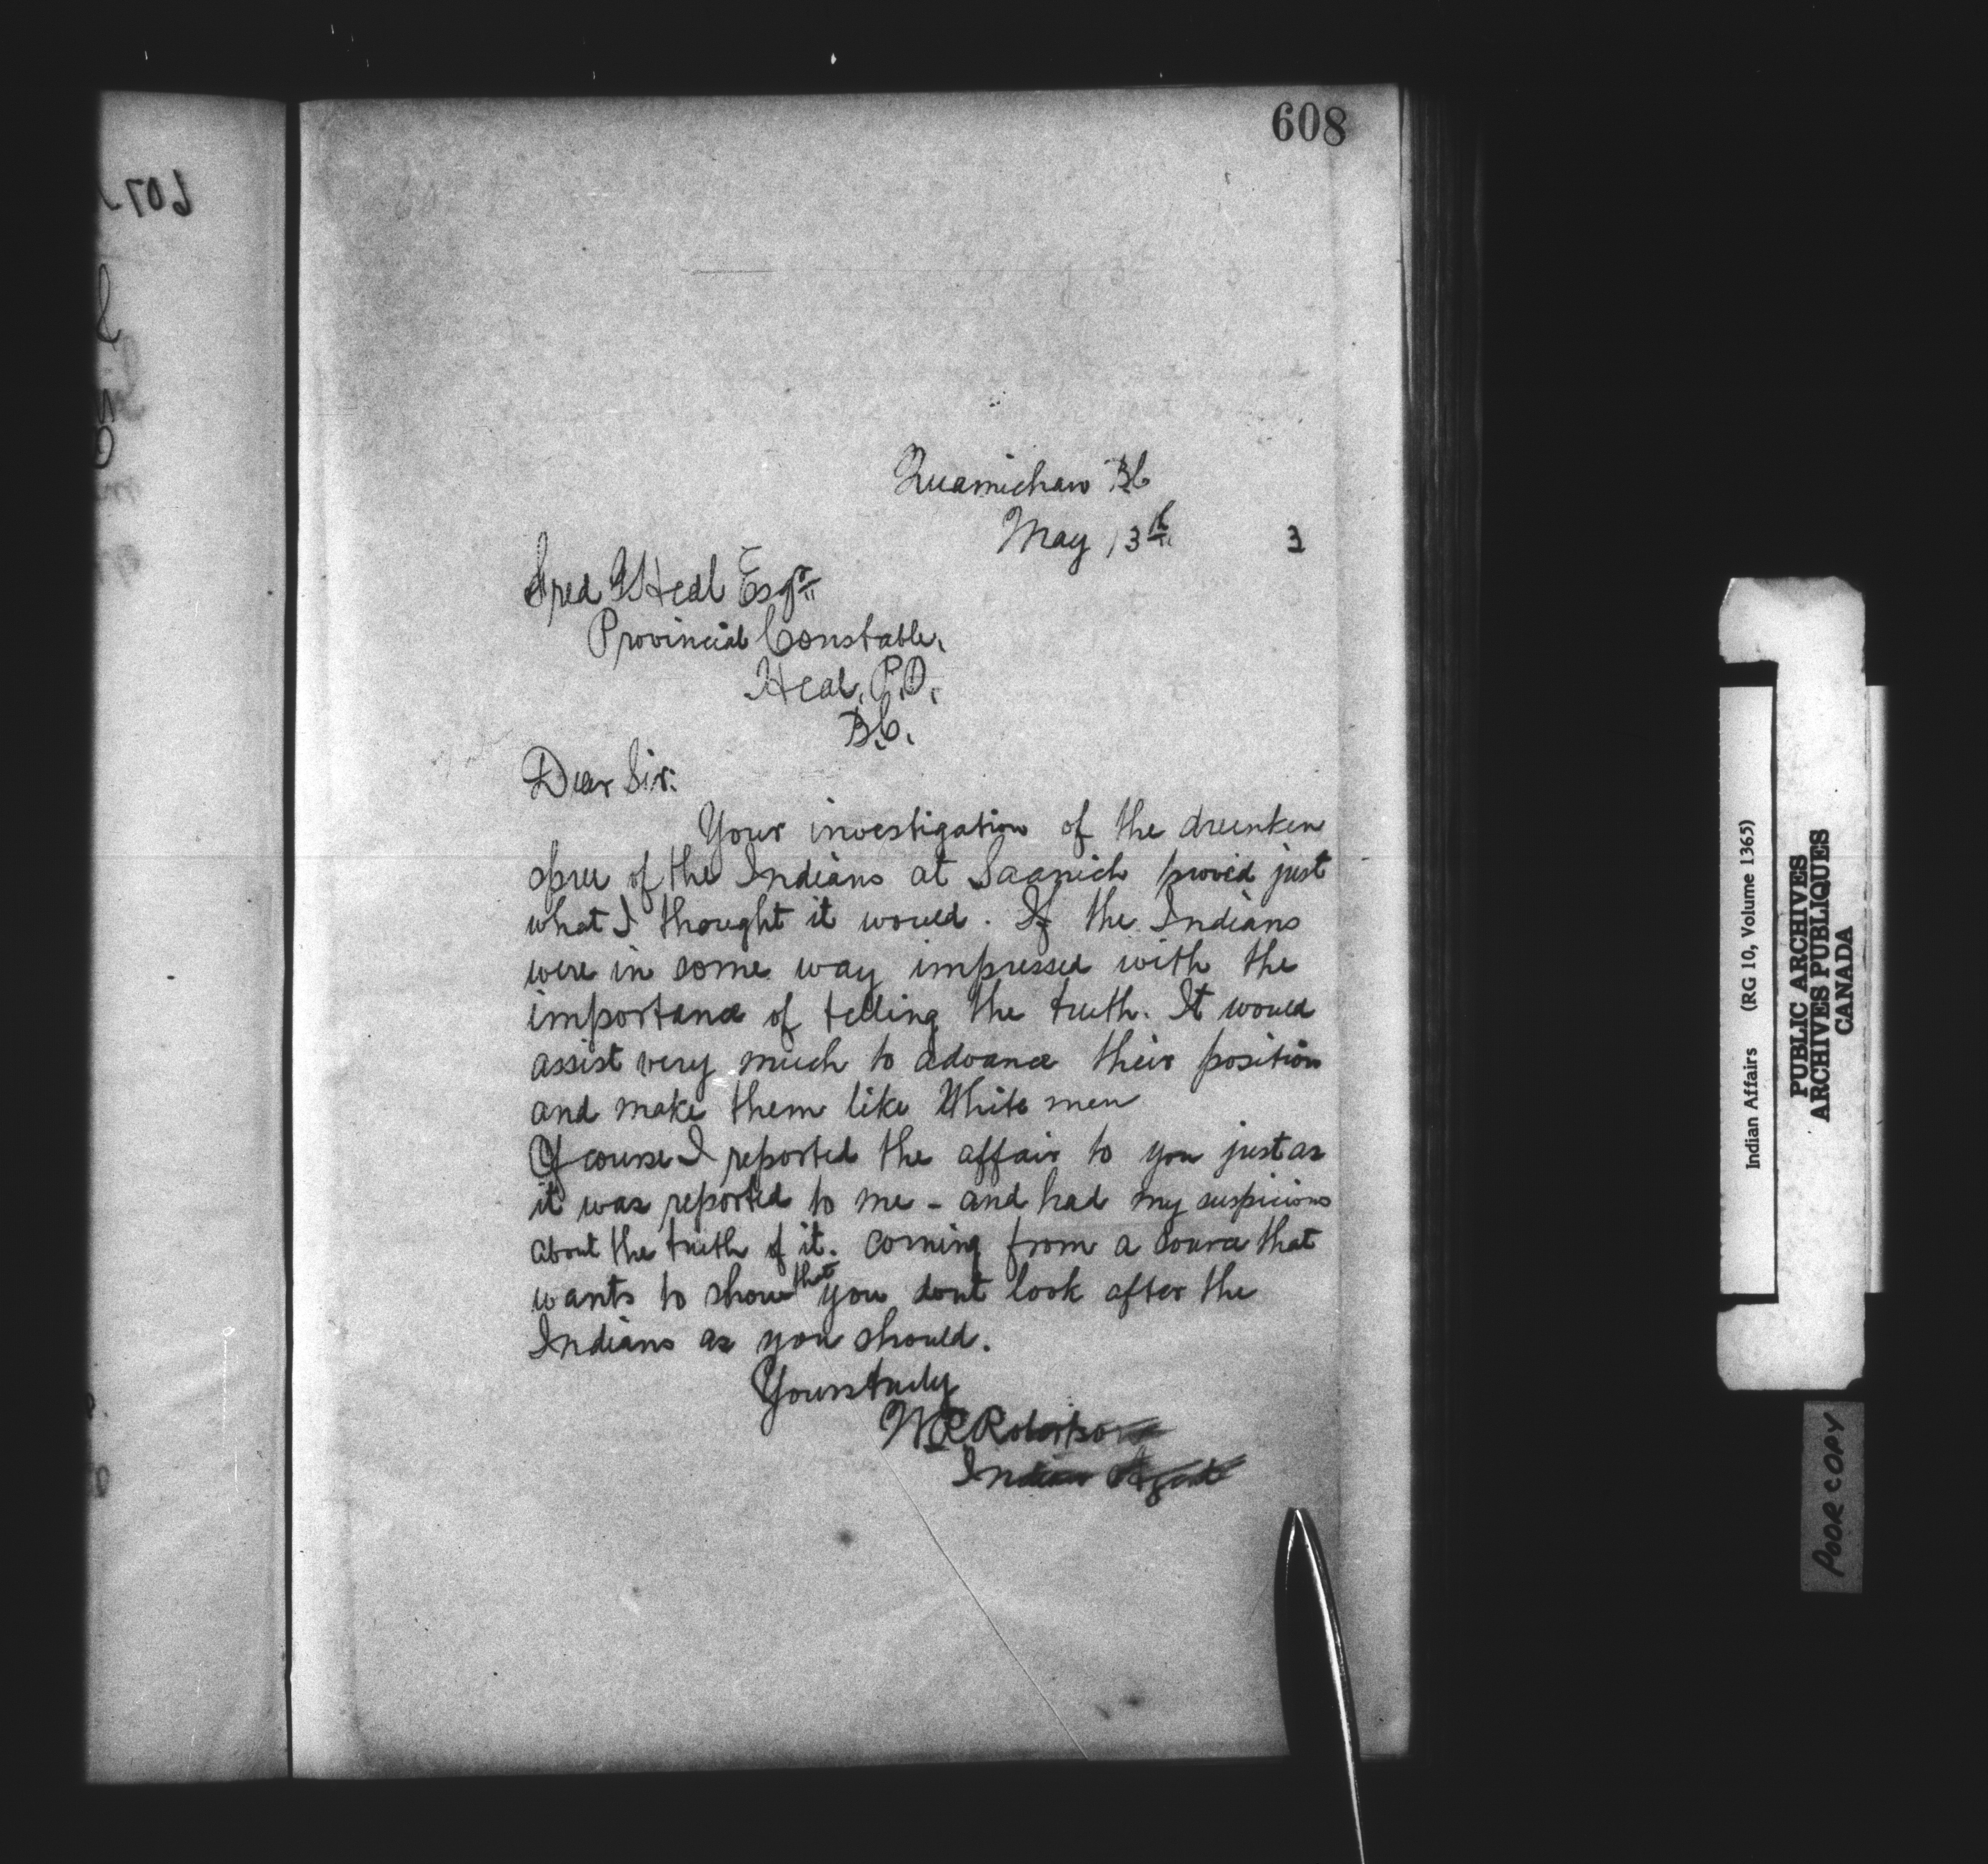 608
607
Quamichan BC
May 13th 3
Fred G Heal Esqr
Provincial Constable,
Heal, P.O,
B.C.
Dear Sir.
Your investigation of the drunken
spree of the Indians at Saanich proved just
what I thought it would. If the Indians
were in some way impressed with the
importance of telling the truth. It would
assist very much to advance their position
and make them like White men
Of course I reported the affair to you just as
it was reported to me - and had my suspicions
about the truth of it. Coming from a source that
wants to show that you dont look after the
Indians as you should.
Yours truly
W R Robertson
Indian Agent
Indian Affairs (RG 10, Volume 1365)
PUBLIC ARCHIVES
ARCHIVES PUBLIQUES
CANADA
POOR COPY